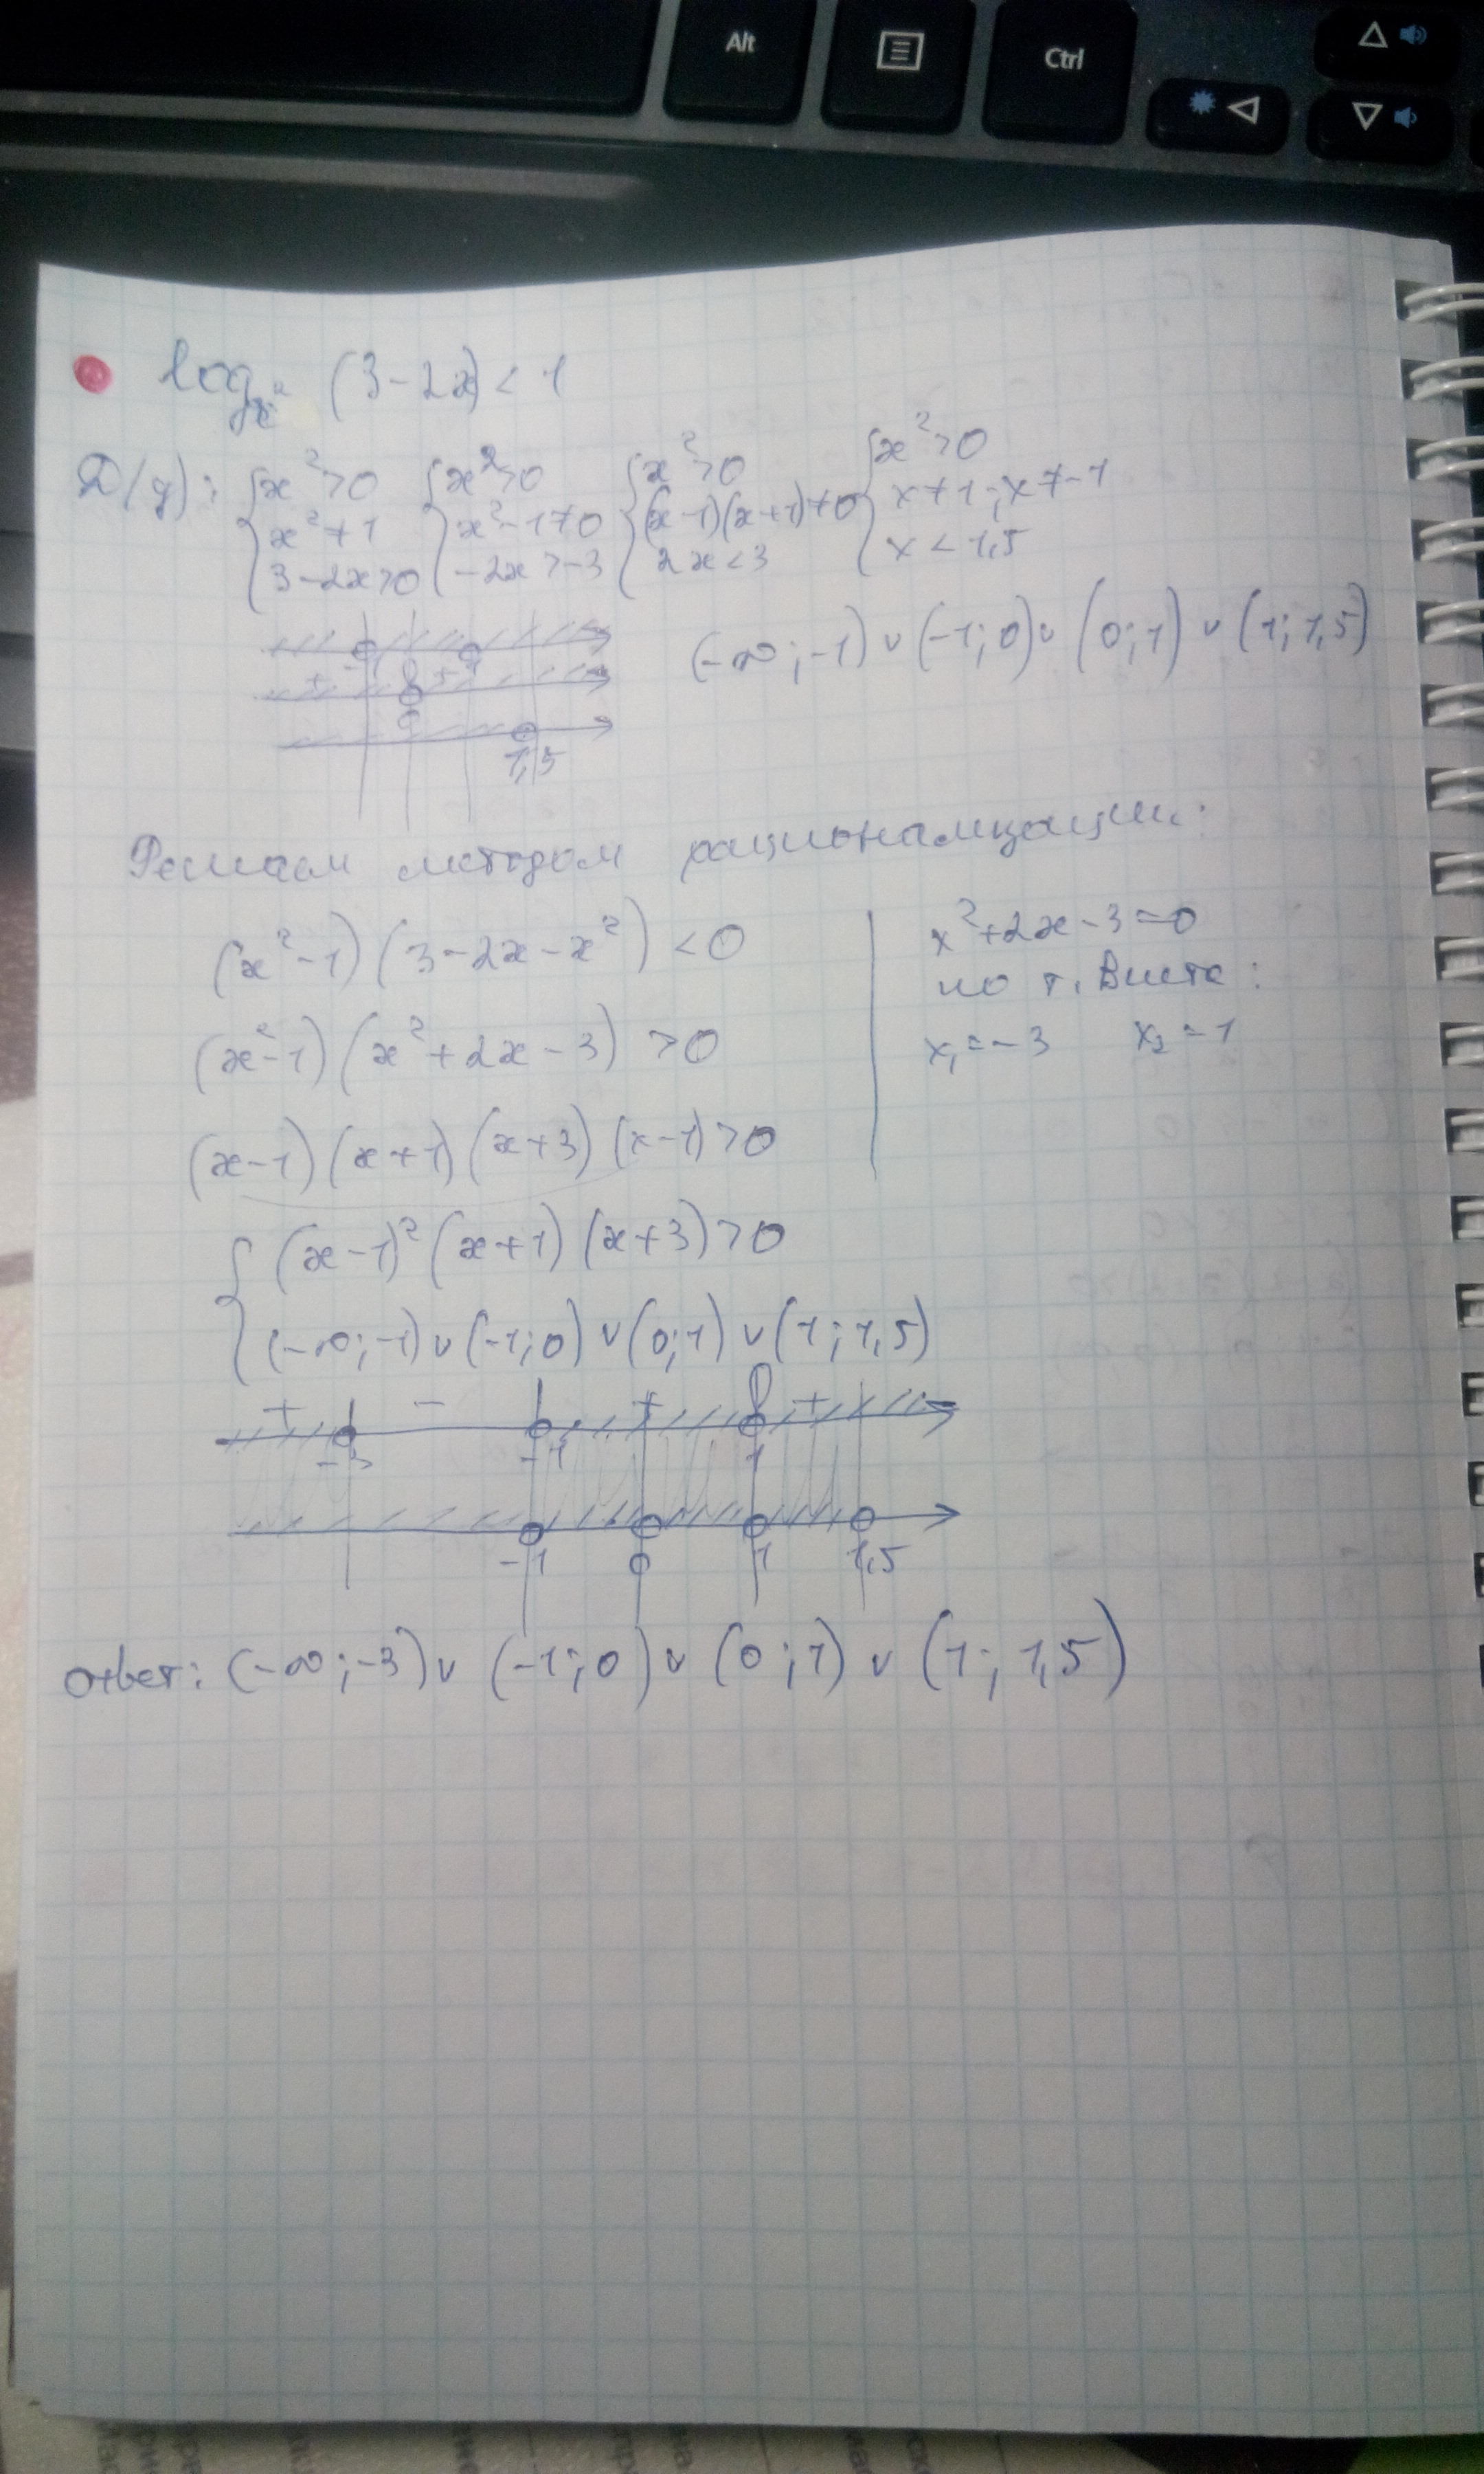 Alt Ctrl
log_{x²} (3-2x) < 1
D(y): { x²>0 { x²>0 { x²>0 { x²>0
x²≠1 x²-1≠0 (x-1)(x+1)≠0 x≠1; x≠-1
3-2x>0 -2x>-3 2x<3 x<1,5
(-∞;-1)∪(-1;0)∪(0;1)∪(1;1,5)
+ -1 - + 1
0
1,5
Решаем методом рационализации:
(x²-1)(3-2x-x²)<0
(x²-1)(x²+2x-3)>0
(x-1)(x+1)(x+3)(x-1)>0
x²+2x-3=0
по т. Виета:
x₁=-3 x₂=1
{ (x-1)²(x+1)(x+3)>0
(-∞;-1)∪(-1;0)∪(0;1)∪(1;1,5)
+ - + +
-3 -1 1
-1 0 1 1,5
ответ: (-∞;-3)∪(-1;0)∪(0;1)∪(1;1,5)